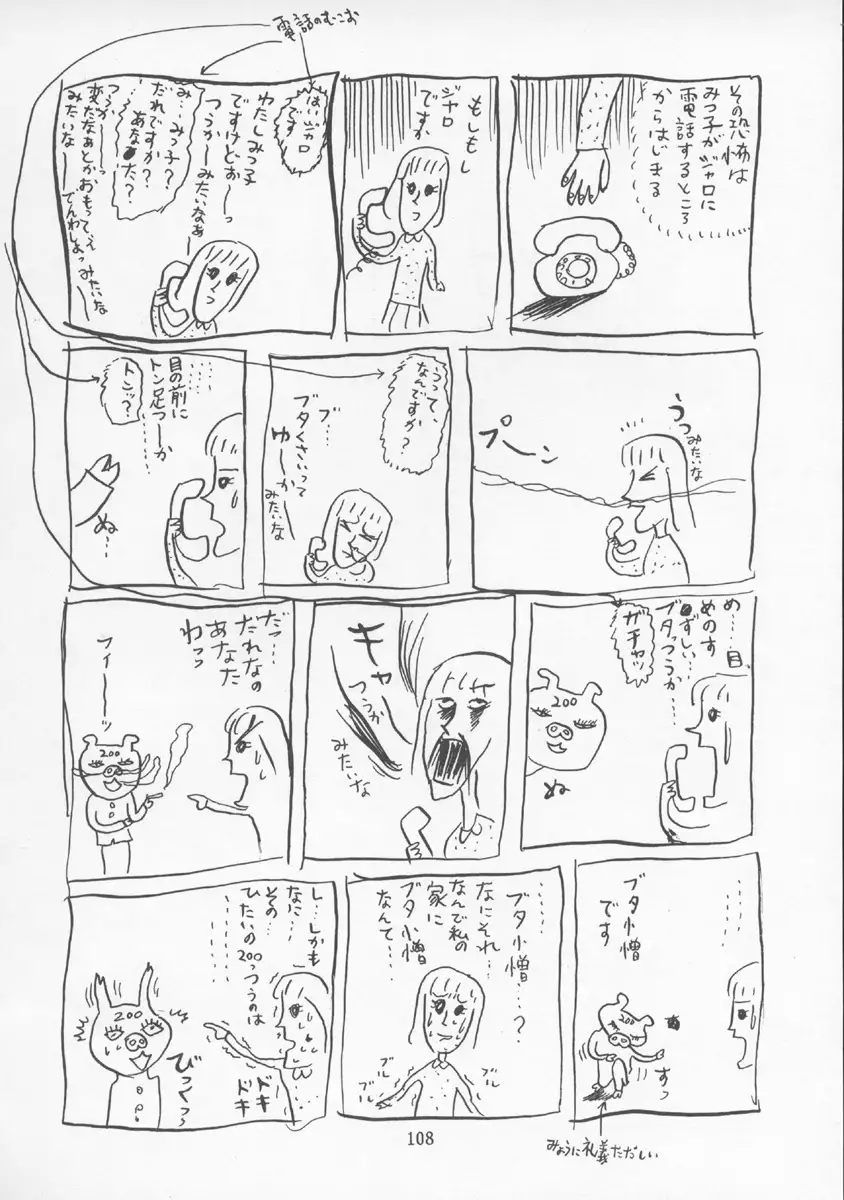 電話のむこお
その恐怖は
みつ子がジャロに
電話するところ
からはじまる
もしもし
ジャロ
ですか
はいジャロ
です
わたしみつ子
ですけどぉ〜っ
つうか〜みたいなぁ〜
み…みつ子?
だれですか?
…あなた?
つうか〜っ
変だなぁとかおもってぇ
みたいな〜でんわしよっみたいな〜
うっ
みたいな
プ〜ン
うって、
なんですか?
ブ…
ブタくさいって
ゆ〜か
みたいな
目の前に
トン足つ〜か
トンッ?
ぬ〜
め…目、
めのす
ずしい…
ブタっつうか…
ガチャッ
200
ぬ
キャッ
つうか
みたいな
だっ…
だれなの
あなた
わっっ
フィ〜ッ
200
ブタ小僧
です
200
すっ
みょうに礼義ただしい
ブタ小僧…?
なにそれ…
なんで私の
家に
ブタ小僧
なんて…
ブルブル
ブルブル
し…しかも
なに…
その…
ひたいの200っつうのは
ドキ
ドキ
200
びくっっ
108